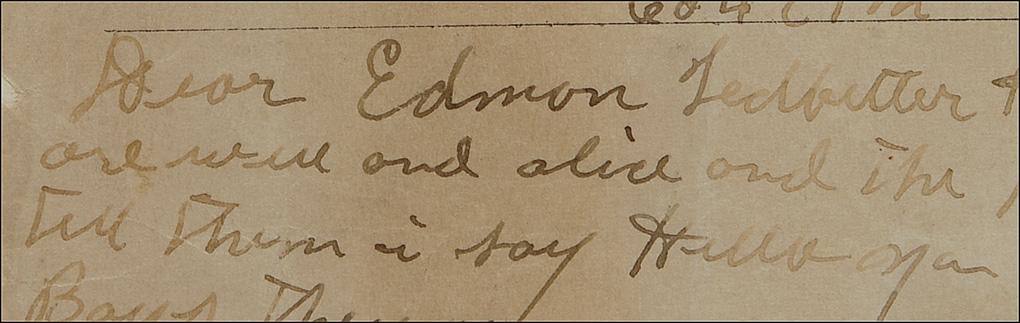 Dear Edmon Ledbetter
are well and alice and the
tell them i say Hello you
Boys They